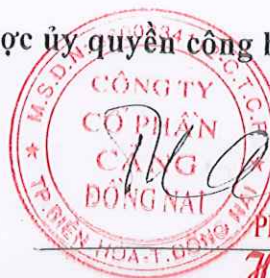 ợc ủy quyền công b
M.S.D.N
C.T.C.P
CÔNG TY
CỔ PHẦN
CẢNG
ĐỒNG NAI
TP. BIÊN HÒA-T. ĐỒNG NAI